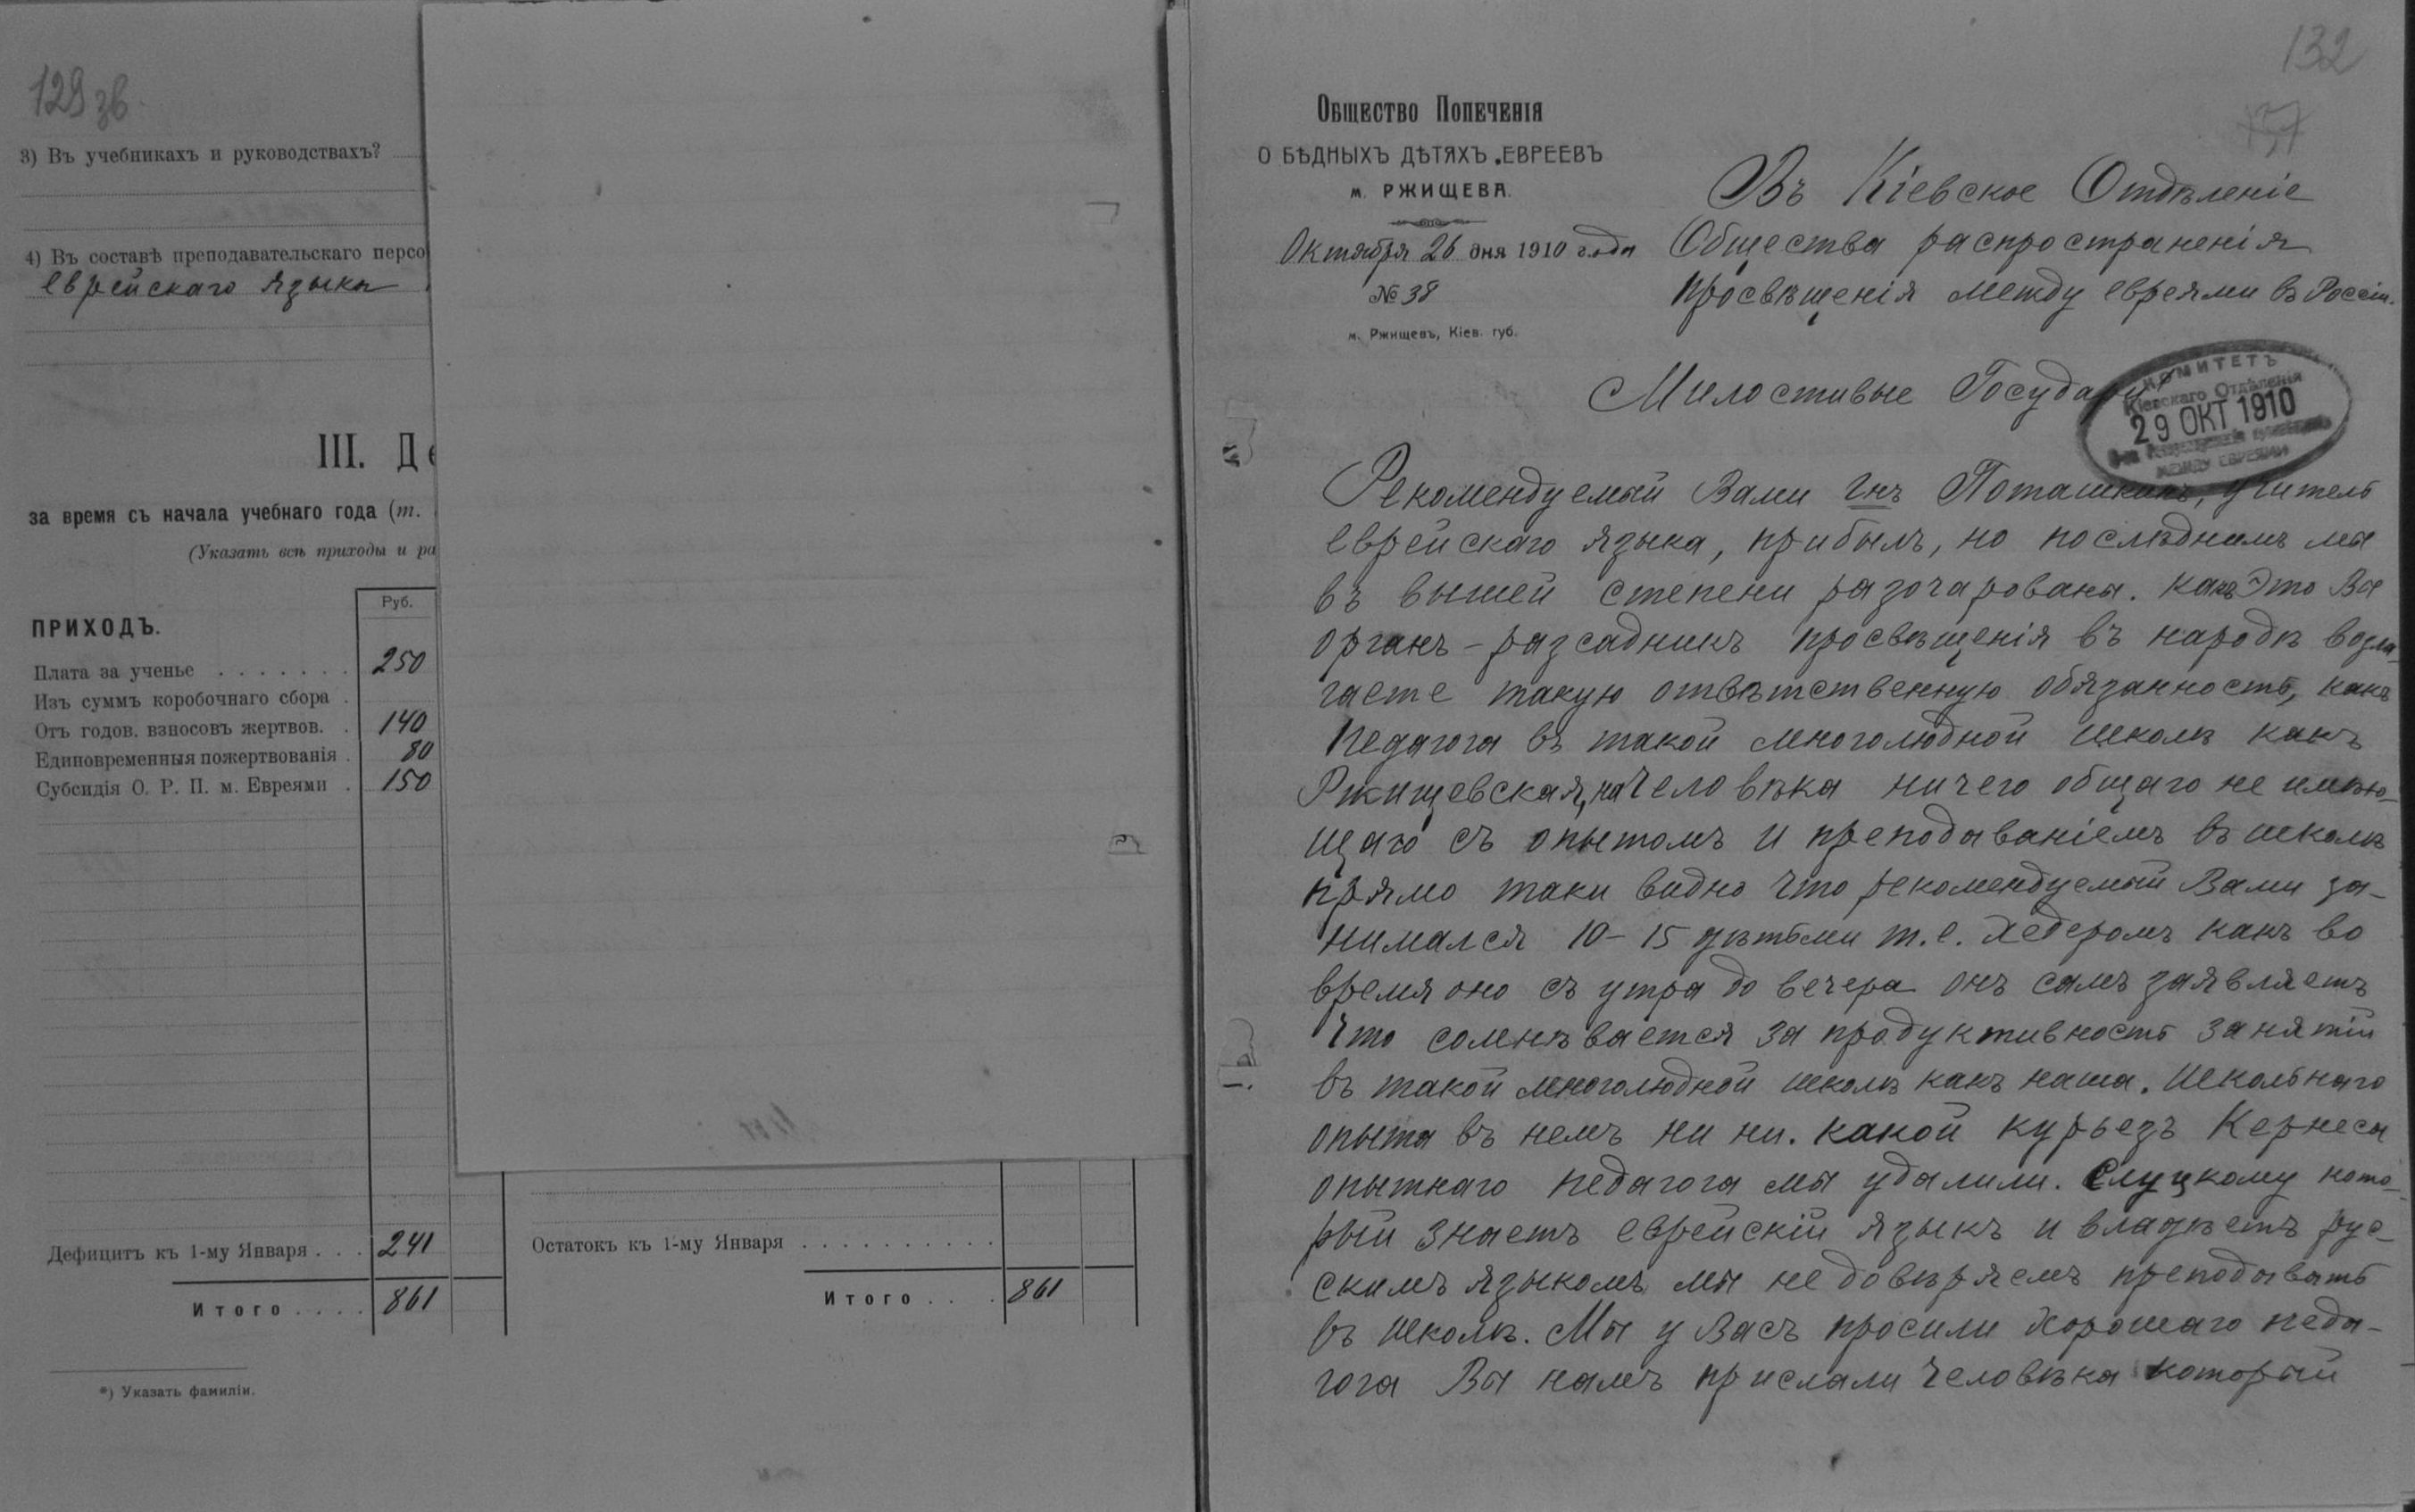 129 зв.
3) Въ учебникахъ и руководствахъ?
4) Въ составѣ преподавательскаго персо
еврейскаго языка
III. Де
за время съ начала учебнаго года (т.
(Указать всѣ приходы и ра
Руб.
ПРИХОДЪ.
Плата за ученье . . . . . . . 250
Изъ суммъ коробочнаго сбора .
Отъ годов. взносовъ жертвов. . 140
Единовременныя пожертвованія . 80
Субсидія О. Р. П. м. Евреями . 150
Дефицитъ къ 1-му Января . . . 241
Итого . . . . 861
Остатокъ къ 1-му Января . . . . . . . . . .
Итого . . . 861
*) Указать фамиліи.
132
Общество Попеченія
О БѢДНЫХЪ ДѢТЯХЪ ЕВРЕЕВЪ
м. РЖИЩЕВА.
Октября 26 дня 1910 года
№ 38
м. Ржищевъ, Кіев. губ.
Въ Кіевское Отдѣленіе
Общества распространенія
просвѣщенія между евреями въ Россіи.
Милостивые Государи
КОМИТЕТЪ
Кіевскаго Отдѣленія
29 ОКТ 1910
МЕЖДУ ЕВРЕЯМИ
Рекомендуемый Вами Гнъ Поташкинъ, учитель
еврейскаго языка, прибылъ, но послѣднимъ мы
въ вышей степени разочарованы. Какъ Это Вы
органъ-разсадникъ просвѣщенія въ народѣ возла-
гаете такую отвѣтственную обязанность, какъ
педагога въ такой многолюдной школѣ какъ
Ржищевская, на человѣка ничего общаго не имѣю-
щаго съ опытомъ и преподаваніемъ въ школѣ
прямо таки видно что рекомендуемый Вами за-
нимался 10-15 дѣтьми т.е. хедеромъ какъ во
время оно съ утра до вечера онъ самъ заявляетъ
что сомнѣвается за продуктивность занятій
въ такой многолюдной школѣ какъ наша. Школьнаго
опыта въ немъ ни ни. какой курьезъ Кернеса
опытнаго педагога мы удалили. Слуцкому кото-
рый знаетъ еврейскій языкъ и владѣетъ рус-
скимъ языкомъ мы не довѣряемъ преподавать
въ школѣ. Мы у Васъ просили хорошаго педа-
гога Вы намъ прислали человѣка который